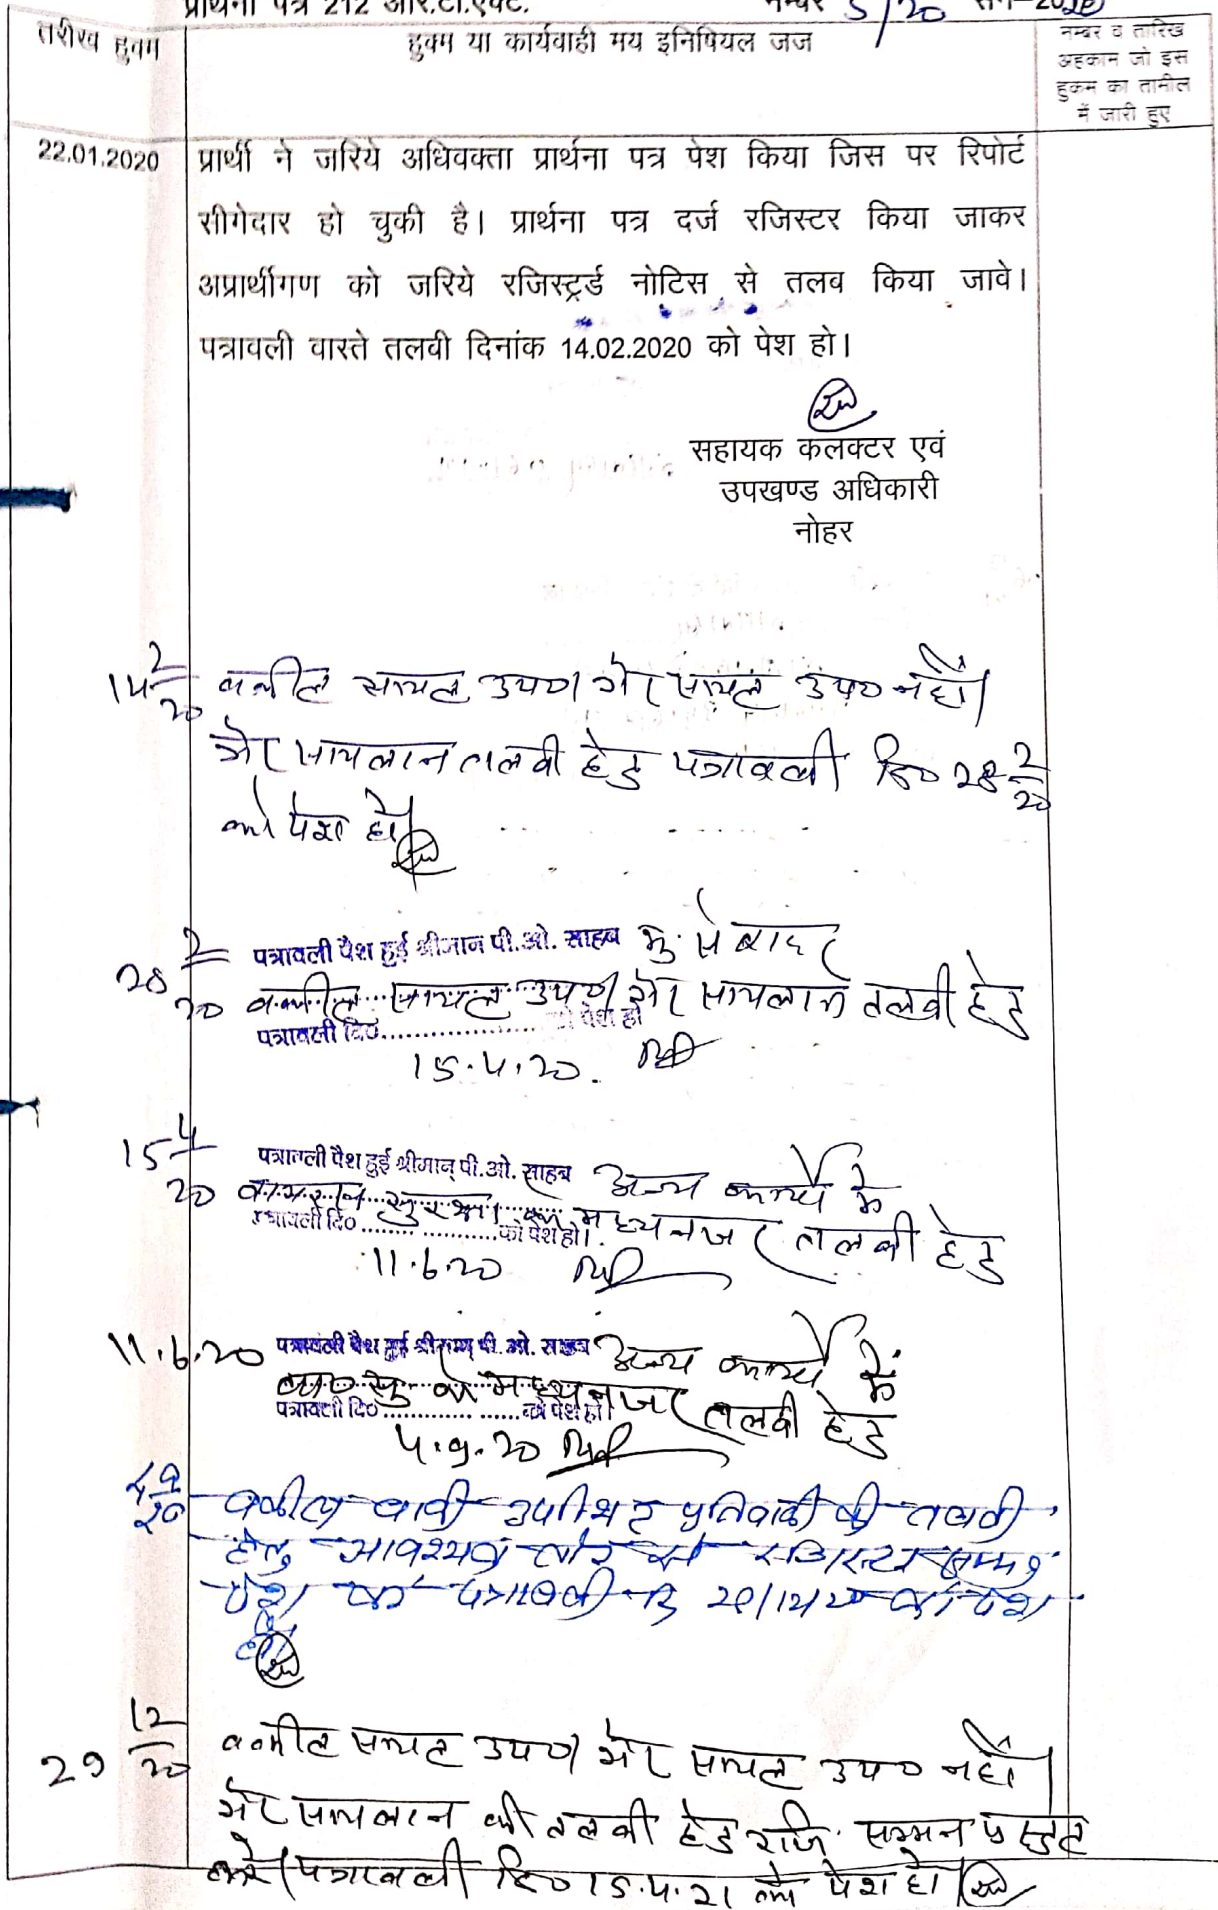 प्रार्थना पत्र 212 आर.टी.एक्ट. नम्बर 5/20 सन-2020
तारीख हुक्म
हुक्म या कार्यवाही मय इनिषियल जज
नम्बर व तारिख
अहकाम जो इस
हुकम का तामील
में जारी हुए
22.01.2020
प्रार्थी ने जरिये अधिवक्ता प्रार्थना पत्र पेश किया जिस पर रिपोर्ट
सीगेदार हो चुकी है। प्रार्थना पत्र दर्ज रजिस्टर किया जाकर
अप्रार्थीगण को जरिये रजिस्ट्रर्ड नोटिस से तलब किया जावे।
पत्रावली वास्ते तलवी दिनांक 14.02.2020 को पेश हो।
सहायक कलक्टर एवं
उपखण्ड अधिकारी
नोहर
14 2/20 वकील सायल उप० गैर सायल उप० नहीं।
गैर सायलान तलबी हेतु पत्रावली दि० 28 2/20
को पेश हो।
28 2/20 पत्रावली पेश हुई श्रीमान पी.ओ. साहब मु. से बाहर
वकील सायल उप० गैर सायलान तलबी हेतु
पत्रावली दि०.................. को पेश हो
15.4.20.
15 4/20 पत्रावली पेश हुई श्रीमान् पी.ओ. साहब अन्य कार्य में
सुरक्षा के मध्यनजर तलबी हेतु
पत्रावली दि०.................. को पेश हो।
11.6.20
11.6.20 पत्रावली पेश हुई श्रीमान पी. ओ. साहब अन्य कार्य में
का० सु के मध्यनजर तलबी हेतु
पत्रावली दि०.................. को पेश हो।
4.9.20
4 9/20 वकील वादी उपस्थित प्रतिवादी की तलबी
हेतु आवश्यक तौर से रजिस्टर्ड सम्मन
पेश करें पत्रावली दि 29/12/20 को पेश
हो।
29 12/20 वकील सायल उप० गैर सायल उप० नहीं।
गैर सायलान की तलबी हेतु रजि. सम्मन प्रस्तुत
करें। पत्रावली दि० 15.4.21 को पेश हो।